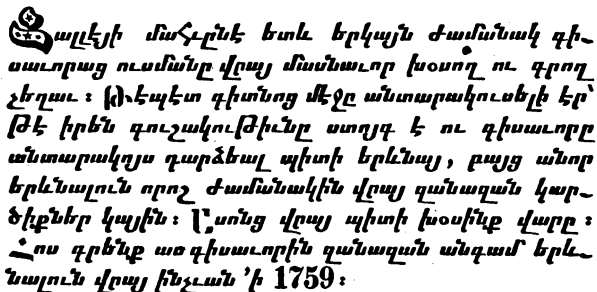 Հալլէյի մահւընէ ետև երկայն ժամանակ գի-
սաւորաց ուսմանը վրայ մասնաւոր խօսող ու գրող
չեղաւ ։ Թէպէտ գիտնոց մէջը անտարակուսելի էր՝
թէ իրեն գուշակութիւնը ստոյգ է ու գիսաւորը
անտարակոյս դարձեալ պիտի երևնայ, բայց անոր
երևնալուն որոշ ժամանակին վրայ զանազան կար-
ծիքներ կային ։ Ասոնց վրայ պիտի խօսինք վարը ։
Հոս գրենք աս գիսաւորին զանազան անգամ երև-
նալուն վրայ ինչւան ՚ի 1759 ։